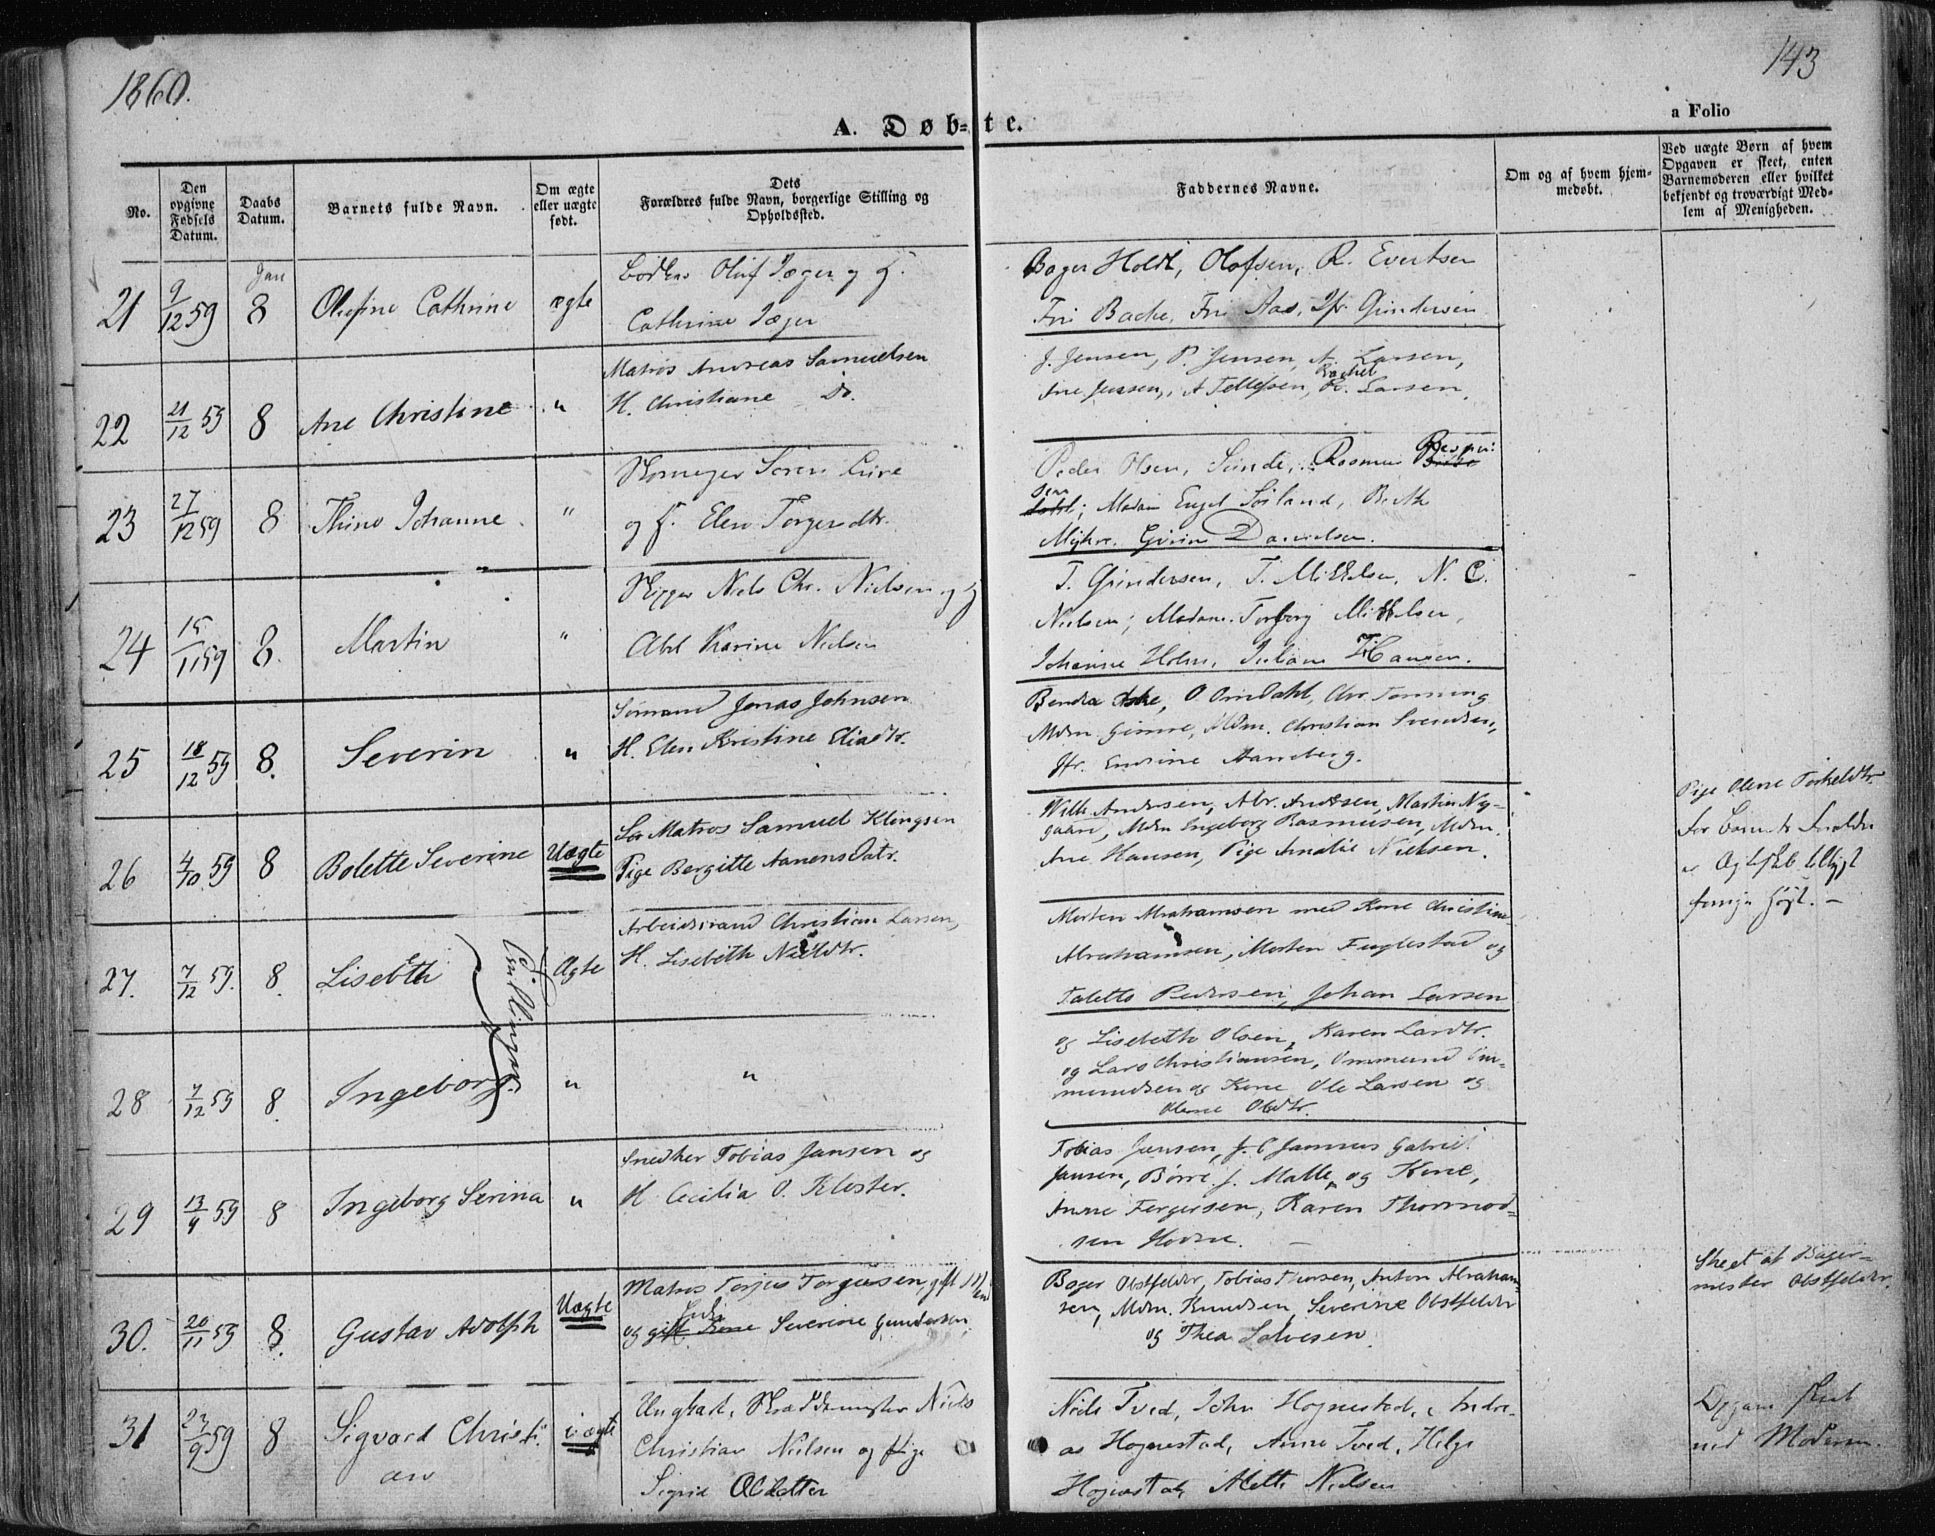 1860.
143
A. Døb-te.
a Folio
No.
Den opgivne Fødsels Datum.
Daabs Datum.
Barnets fulde Navn.
Om ægte eller uægte født.
Dets Forældres fulde Navn, borgerlige Stilling og Opholdssted.
Faddernes Navne.
Om og af hvem hjemmedøbt.
Ved uægte Børn af hvem Opgaven er skeet, enten Barnemoderen eller hvilket bekjendt og troværdigt Medlem af Menigheden.
21 9/12 59 Jan 8 Olefine Cathrine ægte
Bødker Oluf Jæger og H.
Cathrine Jæger
Bager Holdt, Olofsen, R. Evertsen
Fru Backe, Fru Aas, Jfr Gundersen
22 21/12 59 8 Ane Christine "
Matros Andreas Samuelsen
H. Christiane Do.
J. Jensen, P. Jensen, A. Larsen,
Ane Jensen, A Tellefsen, Rachel Larsen.
23 27/12 59 8 Thine Johanne "
Skomager Søren Lure
og H. Elen Torgersdtr.
Peder Olsen, Sunde, Rasmus
Madam Engel Sørland, Berth
Myhre. Gurine Danielsen.
24 15/11 59 8. Martin "
Skipper Niels Chr. Nielsen og H
Abel Karine Nielsen
T. Gundersen, T. Mikkelsen, N. C.
Nielsen; Madam Torborg Mikkelsen,
Johanne Holm, Juliane Hansen.
25 18/12 59 8. Severin "
Sømand Jonas Johnsen
H. Elen Kristine Eliadtr.
Bendix Aske, O Omdahl, Chr. Tønning
Mdm Gimre, Mdm. Christian Svendsen,
Jfr. Endrine Aanneberg.
26 4/10 59 8 Bolette Severine Uægte
Sør Matros Samuel Klingsen
Pige Bergitte Aanensdatr.
Wilh. Andersen, Abr. Andersen, Martin Nygaard, Mdm Ingeborg Rasmussen, Mdm.
Ane Hansen, Pige Amalie Nielsen.
Pige Olene Torkeldtr.
27. 7/12 59. 8. Lisebeth Ægte
Tvillinger
Arbeidsmand Christian Larsen,
H. Lisebeth Nieldtr.
Morten Abrahamsen med Kone Christine
Abrahamsen, Morten Fuglestad og
Taletta Pedersen, Johan Larsen
28 7/12 59 8 Ingeborg. " "
og Lisebeth Olsen, Karen Larsdtr.
og Lars Christiansen, Ommund Ommundsen og Kone, Ole Larsen og
Olene Olsdtr.
29 13/9 59 8 Ingeborg Serina "
Snedker Tobias Jansen og
H Cecilia O. Klester.
Tobias Jansen, J. C Jannus Gabriel
Jansen, Børre J. Malle, og Kone,
Anne Fergersen, Karen Thormodsen Hodne.
30. 20/11 59 8. Gustav Adolph Uægte
Matros Torjus Torgersen, gift Mand
og gift Kone Severine Gundersen
Bager Obstfelder, Tobias Thorsen, Anton Abrahamsen, Mdm. Knudsen, Severine Obstfelder
og Thea Salvesen.
Skeet af Bagermester Obstfelder
31 23/9 59 8 Sigvard Christian uægte
Ungkarl, Skræddermester Niels
Christian Nielsen og Pige
Sigrid Olsdatter
Niels Tved, John Hognestad, Andreas Hognestad, Anne Tved, Helge
Hognestad, Mette Nielsen
Opgave skeet
ved Moderen.